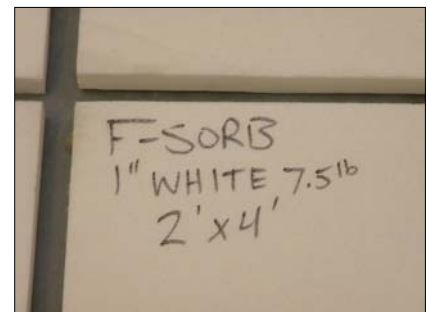 F-SORB
1" WHITE 7.5lb
2'x4'